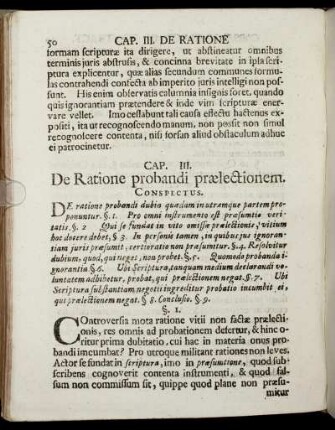 50 CAP. III. DE RATIONE
formam scripturæ ita dirigere, ut abstineatur omnibus
terminis juris abstrusis, & concinna brevitate in ipsa scri-
ptura explicentur, quæ alias secundum communes formu-
las contrahendi confecta ab imperito juris intelligi non pos-
sunt. His enim observatis columnia insignis foret, quando
quis ignorantiam prætendere & inde vim scripturæ ener-
vare vellet. Imo cessabunt tali causa effectu hactenus ex-
positi, ita ut recognoscendo manum, non possit non simul
recognoscere contenta, nisi forsan aliud obstaculum adhuc
ei patrocinetur.
CAP. III.
De Ratione probandi prælectionem.
CONSPECTUS.
DE ratione probandi dubia quædam in utramque partem pro-
ponuntur. §. 1. Pro omni instrumento est præsumtio veri-
tatis. §. 2 Qui se fundat in vitio omissæ prælectionis, vitium
hoc docere debet, § 3. In personis tamen, in quibus jus ignoran-
tiam juris præsumit, certioratio non præsumitur. §. 4. Resolvitur
dubium, quod, qui neget, non probet. §. 5. Quomodo probanda i-
gnorantia §. 6. Ubi Scriptura, tanquam medium declarandi vo-
luntatem adhibetur, probat, qui prælectionem negat. §. 7. Ubi
Scriptura substantiam negotii ingreditur probatio incumbit ei,
qui prælectionem negat. § 8. Conclusio. §. 9.
§. 1.
COntroversia mota ratione vitii non factæ prælecti-
onis, res omnis ad probationem defertur, & hinc o-
ritur prima dubitatio, cui hac in materia onus pro-
bandi incumbat? Pro utroque militant rationes non leves.
Actor se fundat in scriptura, imo in præsumtione, quod sub-
scribens cognoverit contenta instrumenti, & quod fal-
sum non commissum sit, quippe quod plane non præsu-
mitur